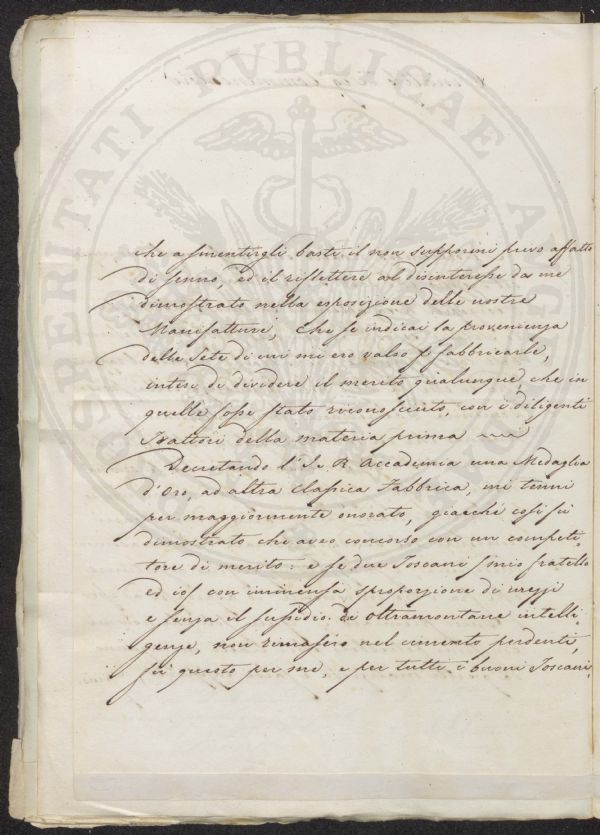 PROSPERITATI PVBLICAE AVG
che a smentirgli basti il non suppormi privo affatto
di senno, ed il riflettere al disinteresse da me
dimostrato nella esposizione delle nostre
Manifatture, che se indicai la provenienza
delle Sete di cui mi ero valso p fabbricarle,
intesi di dividere il merito qualunque, che in
quelle fosse stato riconosciuto, con i diligenti
Trattori della materia prima
Decretando l'I. e R. Accademia una Medaglia
d'Oro, ad altra classica Fabbrica, mi tenni
per maggiormente onorato, giacchè così fù
dimostrato che aveo concorso con un competi-
tore di merito: e se due Toscani (mio fratello
ed io) con immensa sproporzione di mezzi
e senza il sussidio di oltramontane intelli-
genze, non rimasero nel cimento perdenti,
fù questo per me, e per tutti i buoni Toscani,